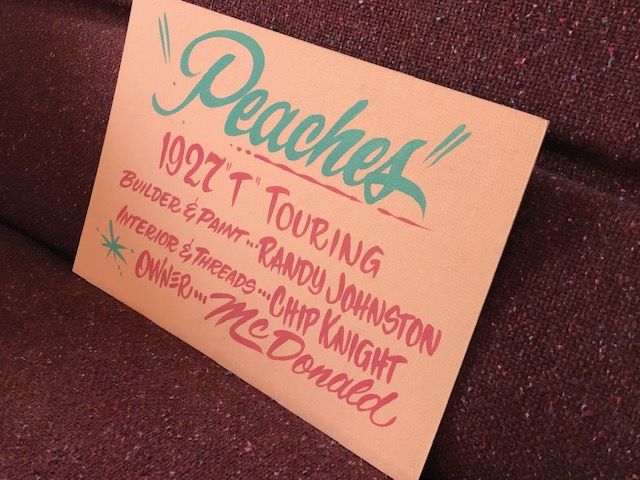 "Peaches"
1927 "T" TOURING
BUILDER & PAINT... RANDY JOHNSTON
INTERIOR & THREADS... CHIP KNIGHT
OWNER... McDonald